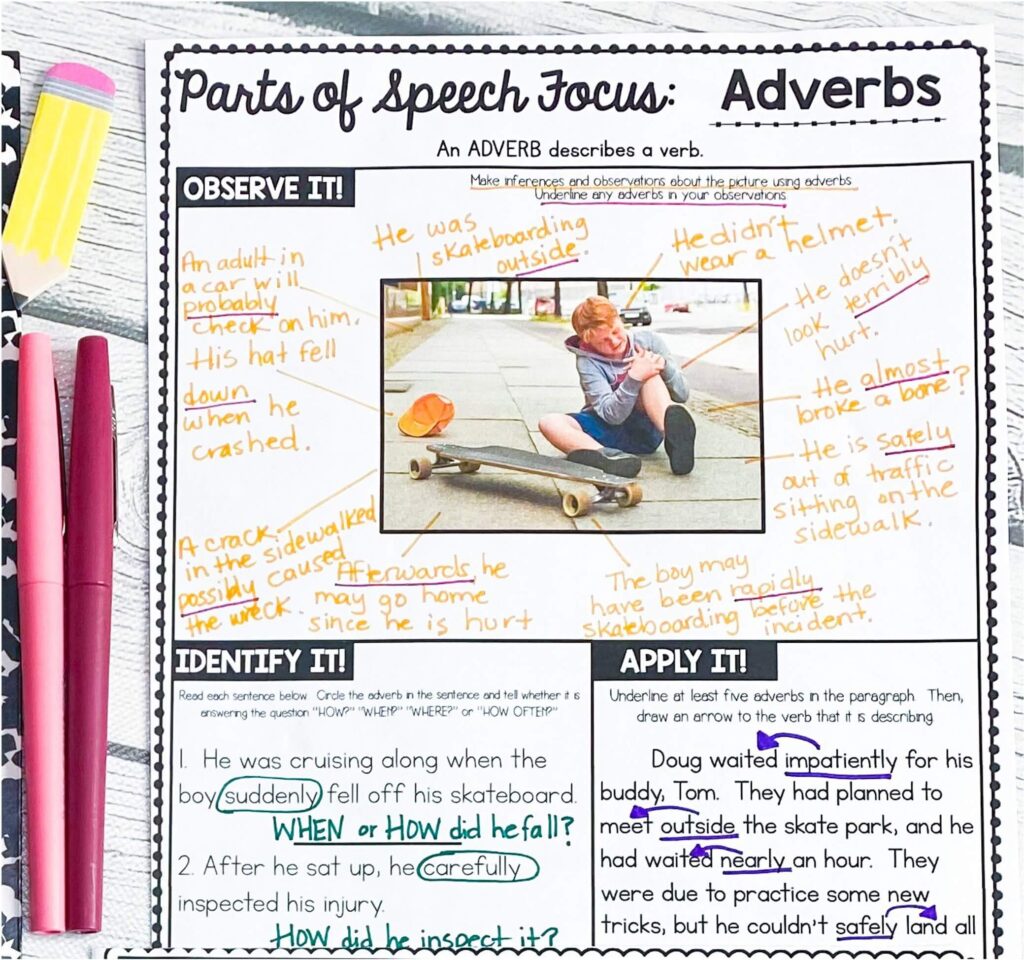 Parts of Speech Focus: Adverbs
An ADVERB describes a verb.
OBSERVE IT!
Make inferences and observations about the picture using adverbs
Underline any adverbs in your observations.
An adult in
a car will
probably
check on him.
He was
skateboarding
outside.
He didn't
wear a helmet.
He doesn't
look terribly
hurt.
His hat fell
down
when he
crashed.
He almost
broke a bone?
He is safely
out of traffic
sitting on the
sidewalk.
A crack
in the sidewalked
possibly caused
the wreck.
Afterwards, he
may go home
since he is hurt
The boy may
have been rapidly
skateboarding before the
incident.
IDENTIFY IT!
Read each sentence below. Circle the adverb in the sentence and tell whether it is
answering the question "HOW?" "WHEN?" "WHERE?" or "HOW OFTEN?"
1. He was cruising along when the
boy suddenly fell off his skateboard.
WHEN or HOW did he fall?
2. After he sat up, he carefully
inspected his injury.
HOW did he inspect it?
APPLY IT!
Underline at least five adverbs in the paragraph. Then,
draw an arrow to the verb that it is describing.
Doug waited impatiently for his
buddy, Tom. They had planned to
meet outside the skate park, and he
had waited nearly an hour. They
were due to practice some new
tricks, but he couldn't safely land all